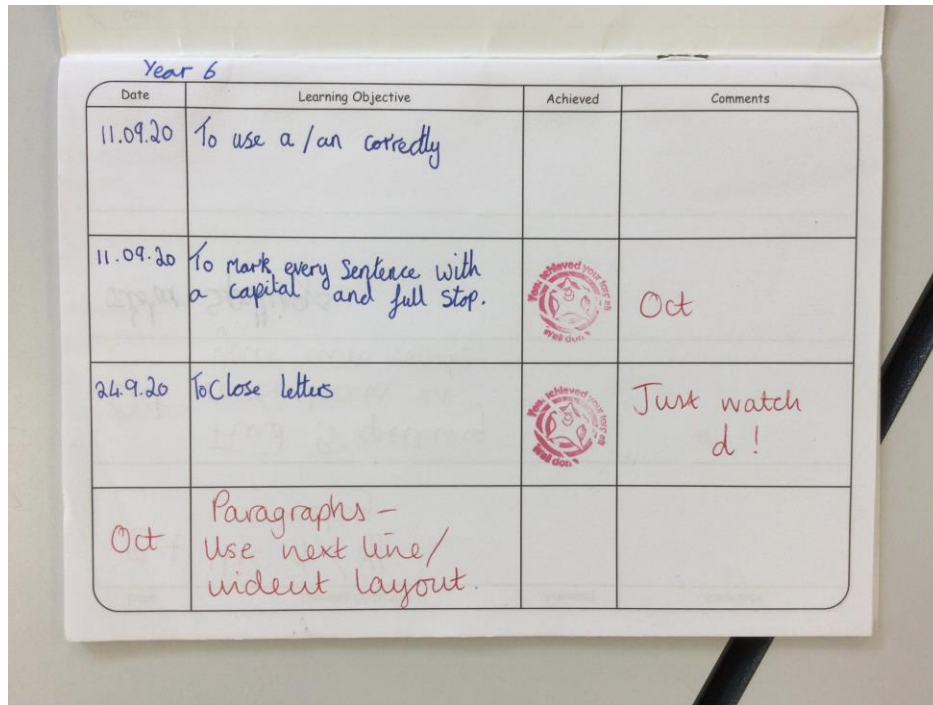 Year 6
Date Learning Objective Achieved Comments
11.09.20 To use a/an correctly
11.09.20 To mark every Sentence with
a capital and full stop.
You achieved your target
Well don
Oct
24.9.20 To Close letters
You achieved your target
Well don
Just watch
d!
Oct
Paragraphs -
Use next line/
indent layout.